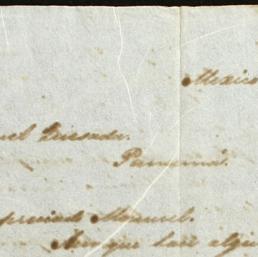 Mexico
uel Quesada.
Panamá.
preciado Manuel.
Aunque hace algu